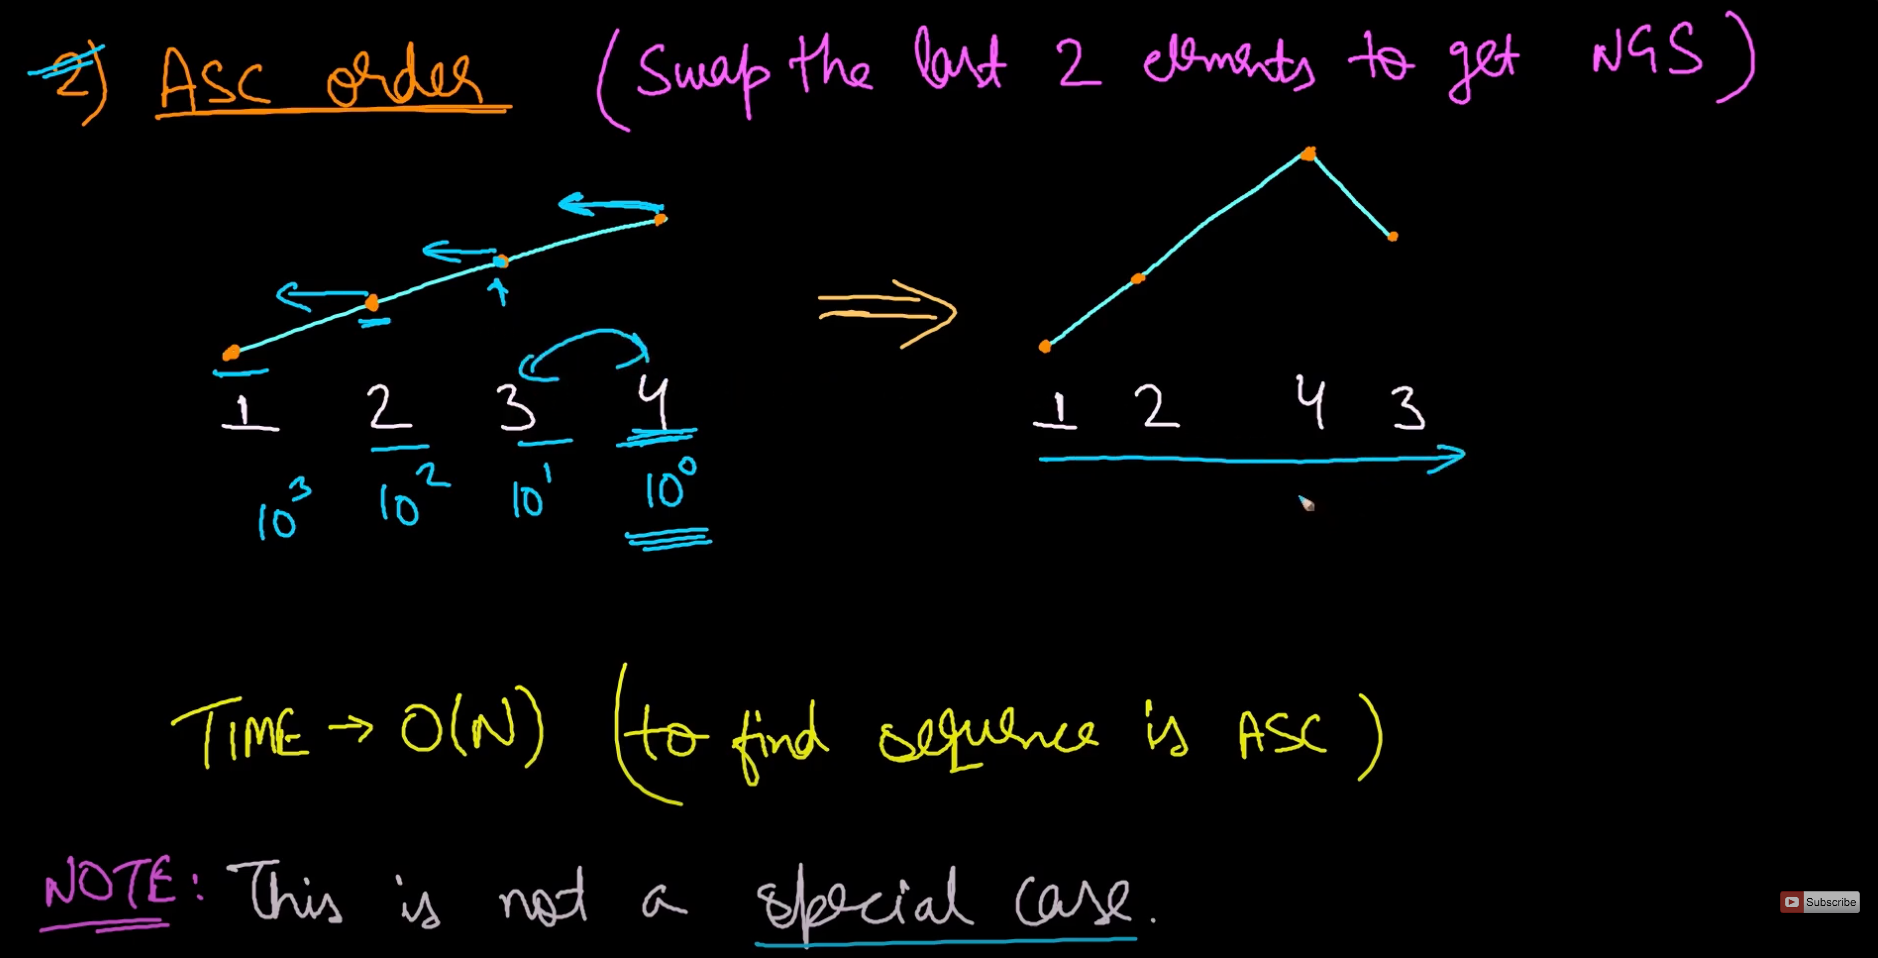 2) ASC order (Swap the last 2 elements to get NGS)
1 2 3 4
10³ 10² 10¹ 10⁰
1 2 4 3
TIME → O(N) (to find sequence is ASC)
NOTE: This is not a special case.
Subscribe